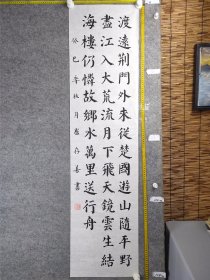 渡遠荊門外來從楚國遊山隨平野
盡江入大荒流月下飛天鏡雲生結
海樓仍憐故鄉水萬里送行舟
癸巳年秋月存善書